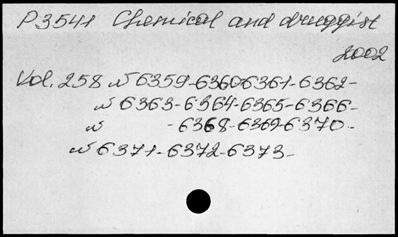 P3541 Chemical and druggist
2002
Vol. 258 N 6359-6360-6361-6362-
N 6363-6364-6365-6366-
N - 6368-6369-6370-
N 6371-6372-6373-